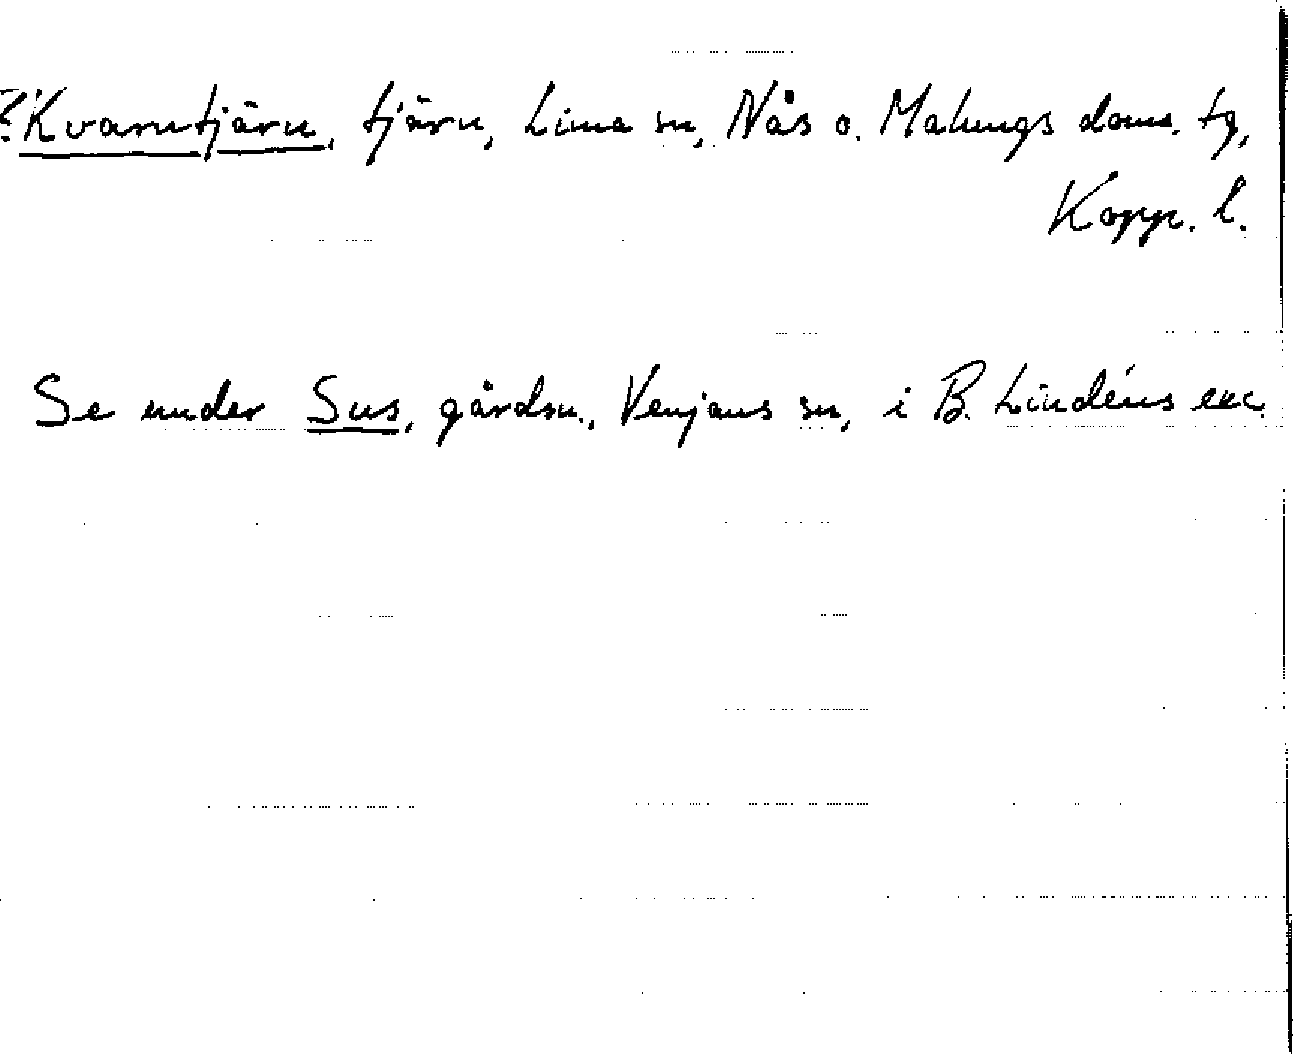 ?Kvarntjärn, tjärn, Lima sn, Nås o. Malungs doms. tg,
Kopp. l.
Se under Sus, gårdsn., Venjans sn, i B. Lindéns exc.